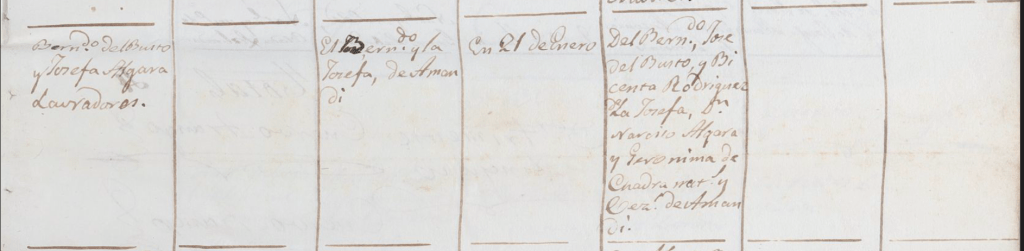 Bern.do del Busto
y Josefa Algara
Lavradores.
El Bern.do y la
Josefa, de Aman
di
En 21 de Enero
Del Bern.do, Jose
del Busto, y Bi
centa Rodriguez
La Josefa, Dn
Narciso Algara
y Geronima de
Cuadra nat.s y
Vez.s de Aman
di.